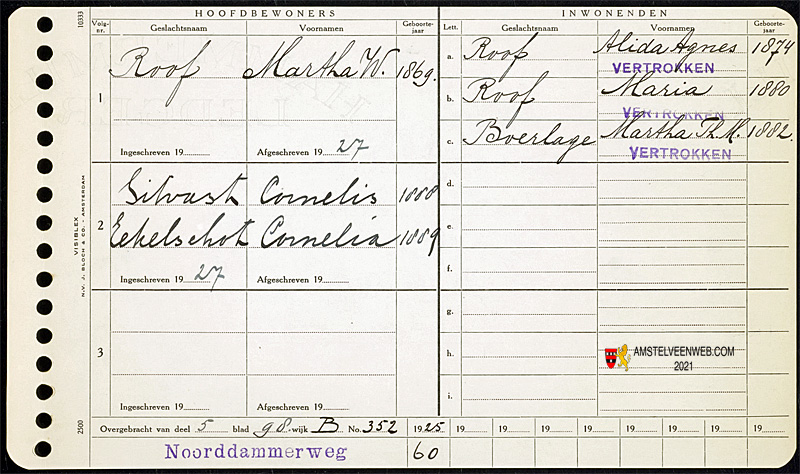 HOOFDBEWONERS INWONENDEN
10333 Volg-nr. Geslachtsnaam Voornamen Geboorte-jaar Lett. Geslachtsnaam Voornamen Geboorte-jaar
1 Roof Martha W. 1869.
Ingeschreven 19 Afgeschreven 19 27
2 Silvast Cornelis 1888
Eekelschot Cornelia 1889
Ingeschreven 19 27 Afgeschreven 19
3
Ingeschreven 19 Afgeschreven 19
a. Roof Alida Agnes 1874
VERTROKKEN
b. Roof Maria 1880
VERTROKKEN
c. Boerlage Martha Th. M. 1882.
VERTROKKEN
d.
e.
f.
g.
h.
i.
AMSTELVEENWEB.COM
2021
VISIBLEX
N.V. J. BLOCH & CO. - AMSTERDAM
2500
Overgebracht van deel 5 blad 98 wijk B No. 352 1925 19 19 19 19 19 19 19 19
Noorddammerweg 60